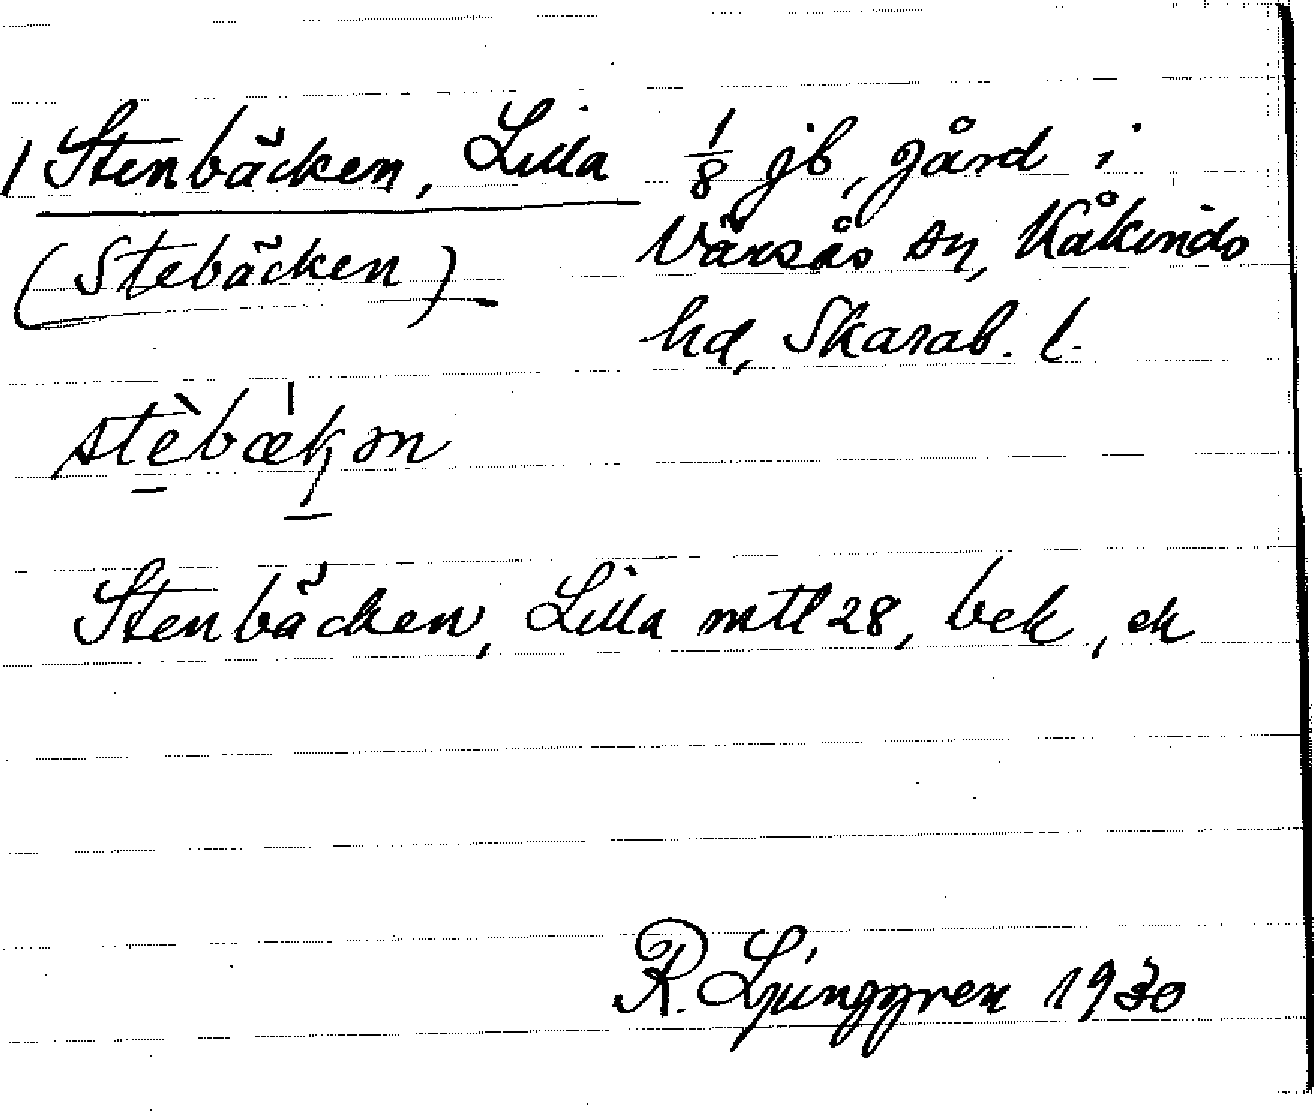 1 Stenbäcken, Lilla 1/8 jb, gård i
(Stebäcken) Värsås sn, Kåkinds
hd, Skarab. l.
stèbækən
Stenbäcken, Lilla mtl 28, bek, ek
R. Ljunggren 1930